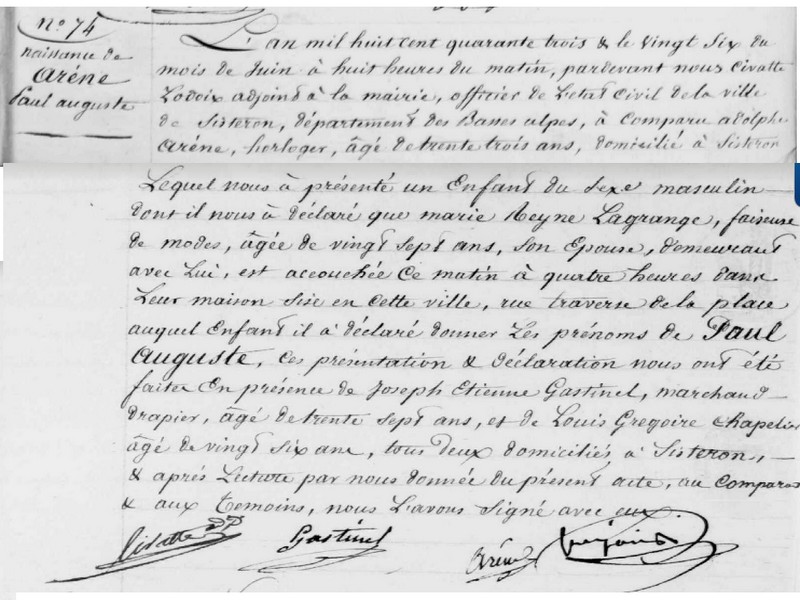 n° 74
naissance de
Aréne
Paul auguste
L'an mil huit cent quarante trois & le vingt six du
mois de Juin à huit heures du matin, pardevant nous civatte
Lodoix adjoint à la mairie, officier de L'etat Civil de la ville
de Sisteron, département des Basses alpes, à Comparu adolphe
aréne, horloger, âgé de trente trois ans, domicilié à Sisteron
Lequel nous à présenté un Enfant du Sexe masculin
dont il nous à déclaré que marie Reyne Lagrange, faiseuse
de modes, âgée de vingt sept ans, Son Epouse, demeurant
avec Lui, est accouchée Ce matin à quatre heures dans
Leur maison Sise en Cette ville, rue traverse de la place
auquel Enfant il à déclaré donner Les prénoms de Paul
Auguste, Ces présentation & déclaration nous ont été
faites En présence de Joseph Etienne Gastinel, marchand
drapier, âgé de trente sept ans, et de Louis Gregoire Chapelier
âgé de vingt six ans, tous deux domiciliés à Sisteron,
& aprés Lecture par nous donnée du présent acte, au Comparant
& aux Temoins, nous L'avons Signé avec eux.
Civatte Gastinel Aréne